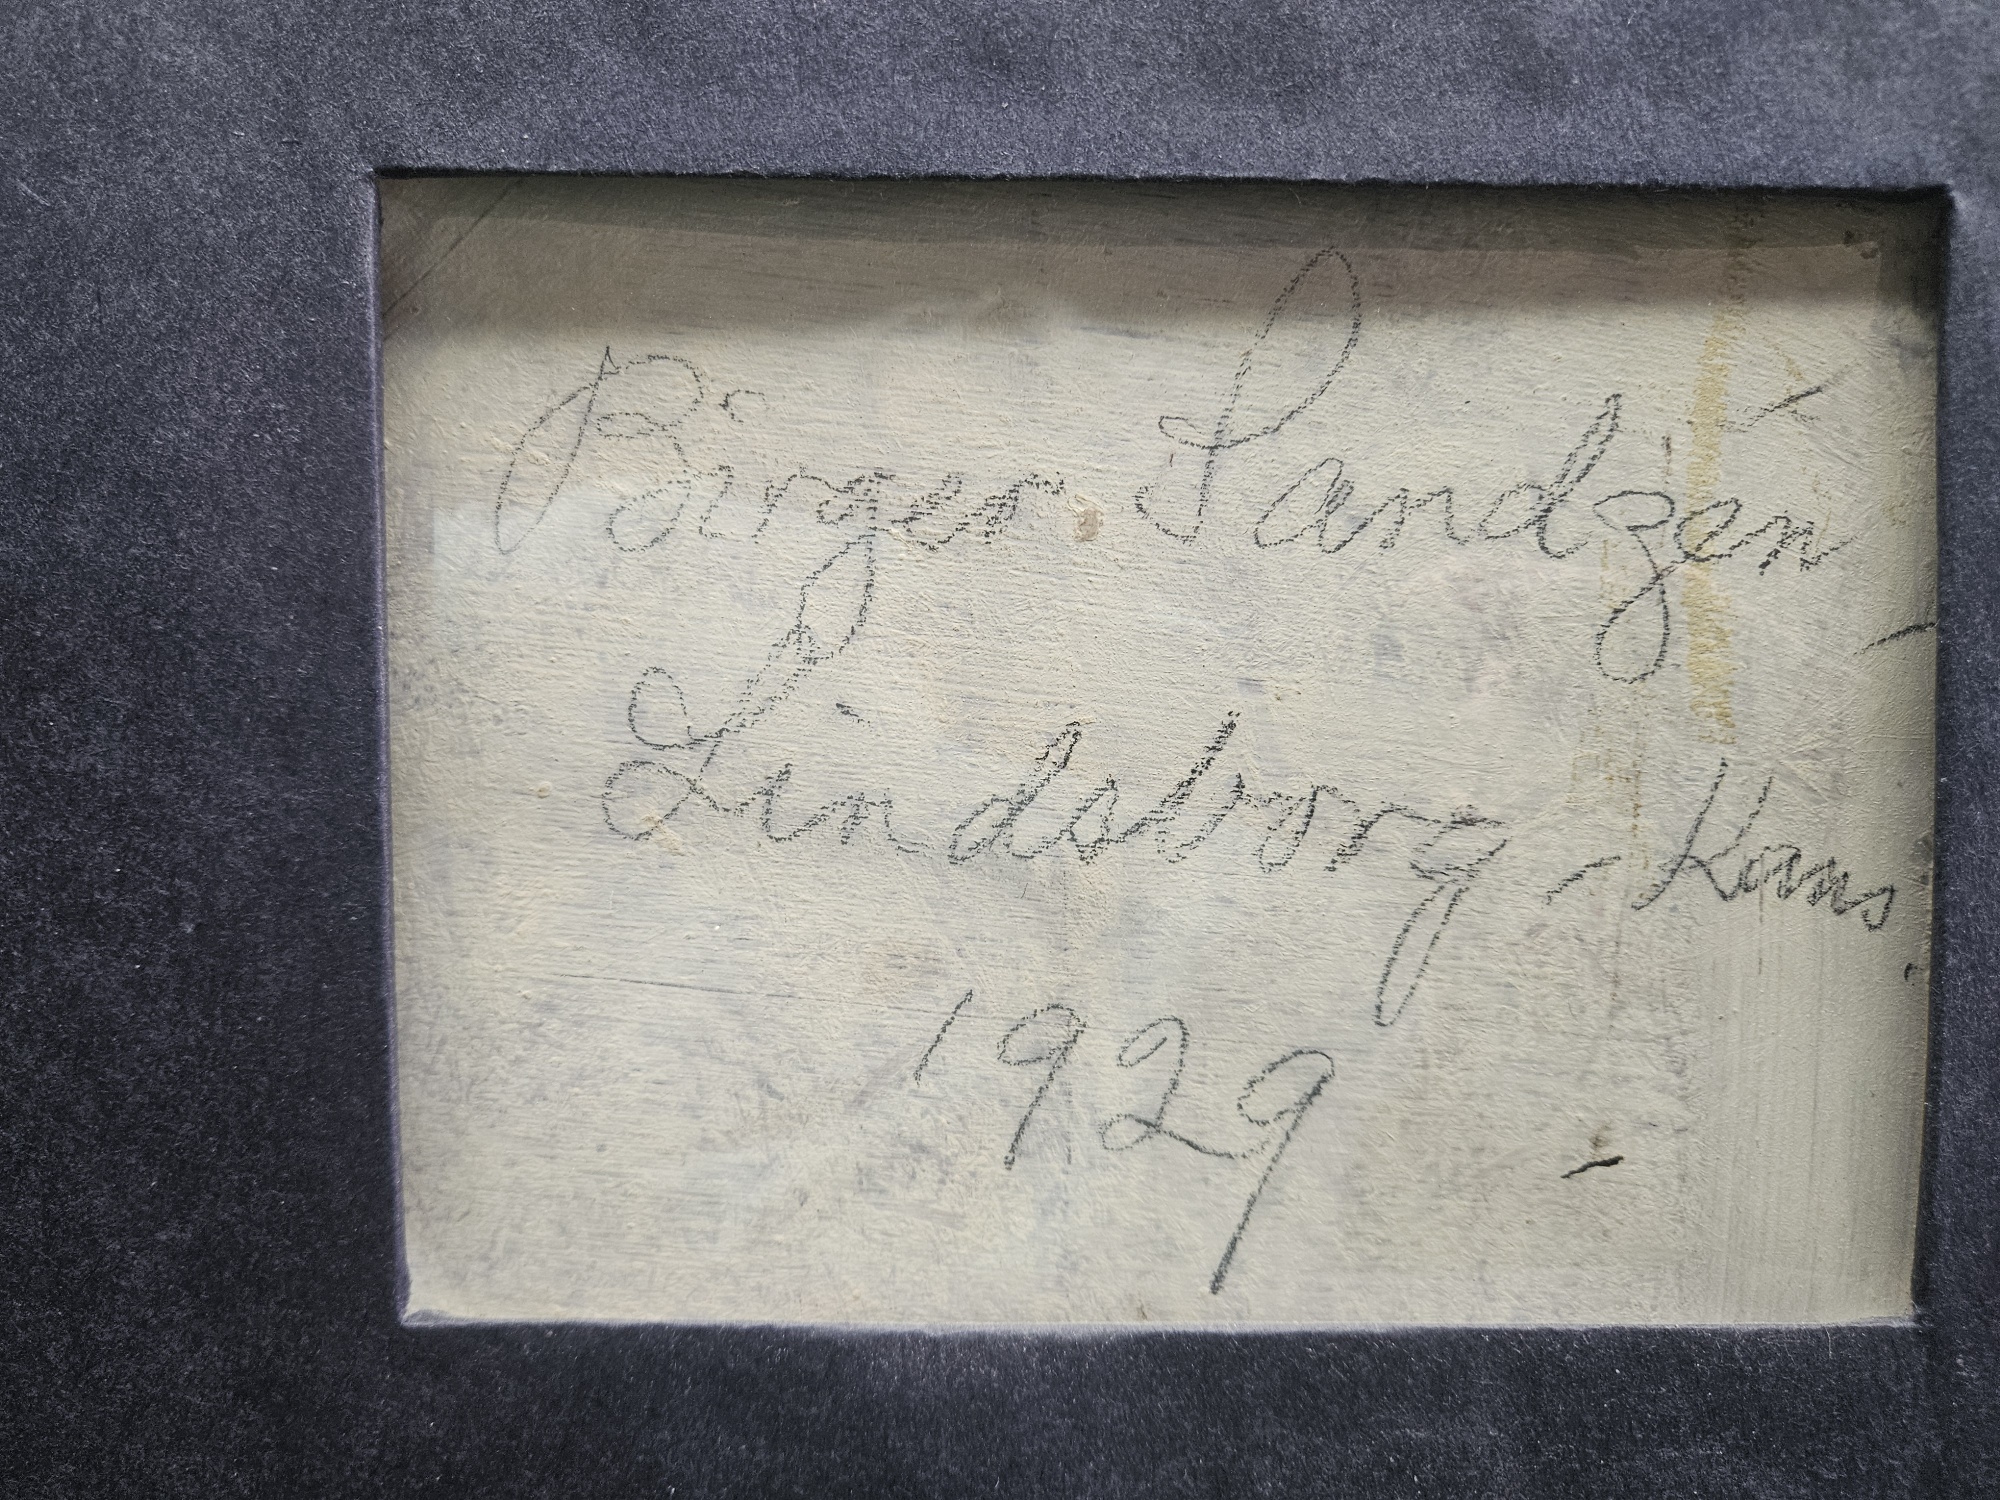 Birger Sandzén
Lindsborg - Kans
1929